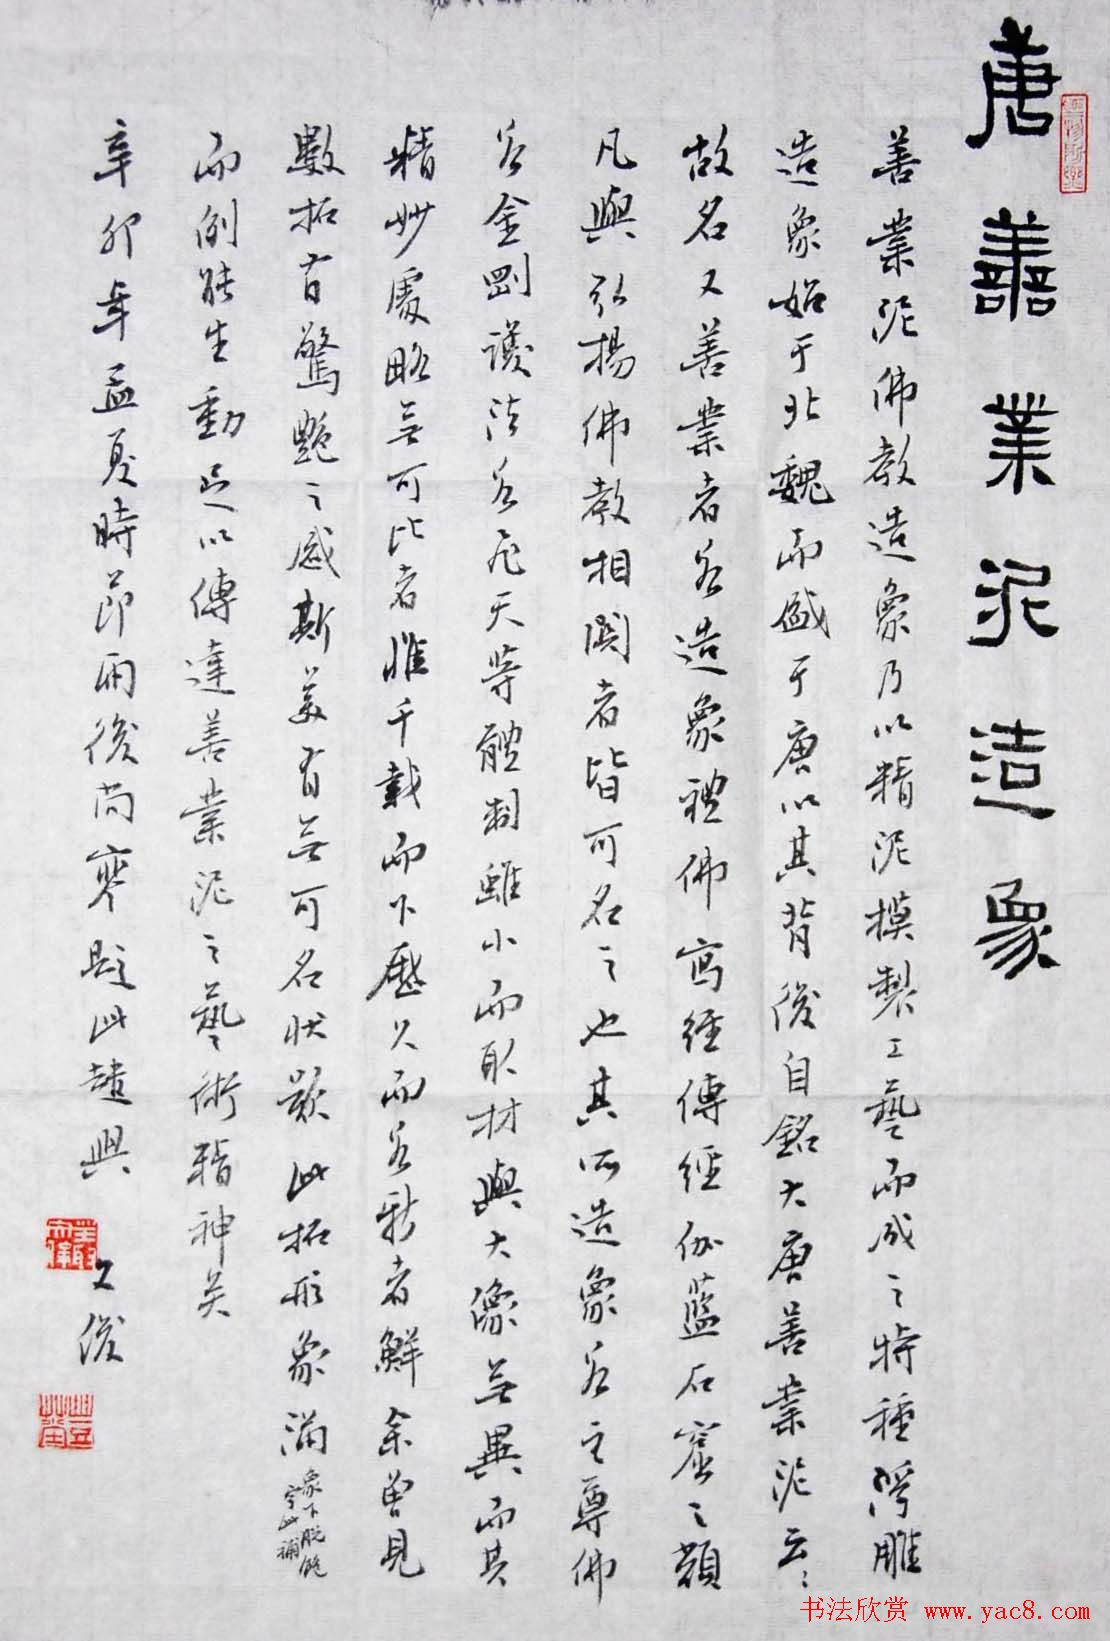 唐善業泥造象
善業泥佛教造象乃以精泥模製工藝而成之特種浮雕
造象始于北魏而盛于唐以其背後自銘大唐善業泥云云
故名又善業者若造象禮佛寫經傳經伽藍石窟之類
凡與弘揚佛教相関者皆可名之也其所造象若主尊佛
若金剛護法若飛天等體制雖小而取材與大像無異而其
精妙處略無可比者惟千載而下歷久而若新者鮮余曾見
數拓皆有驚艷之感斯美有無可名狀歟此拓形象滿
象下脫飽
字此補
而刻能生動足以傳達善業泥之藝術精神矣
辛卯年孟夏時節雨後尚寒題此遣興
文俊
书法欣赏 www.yac8.com